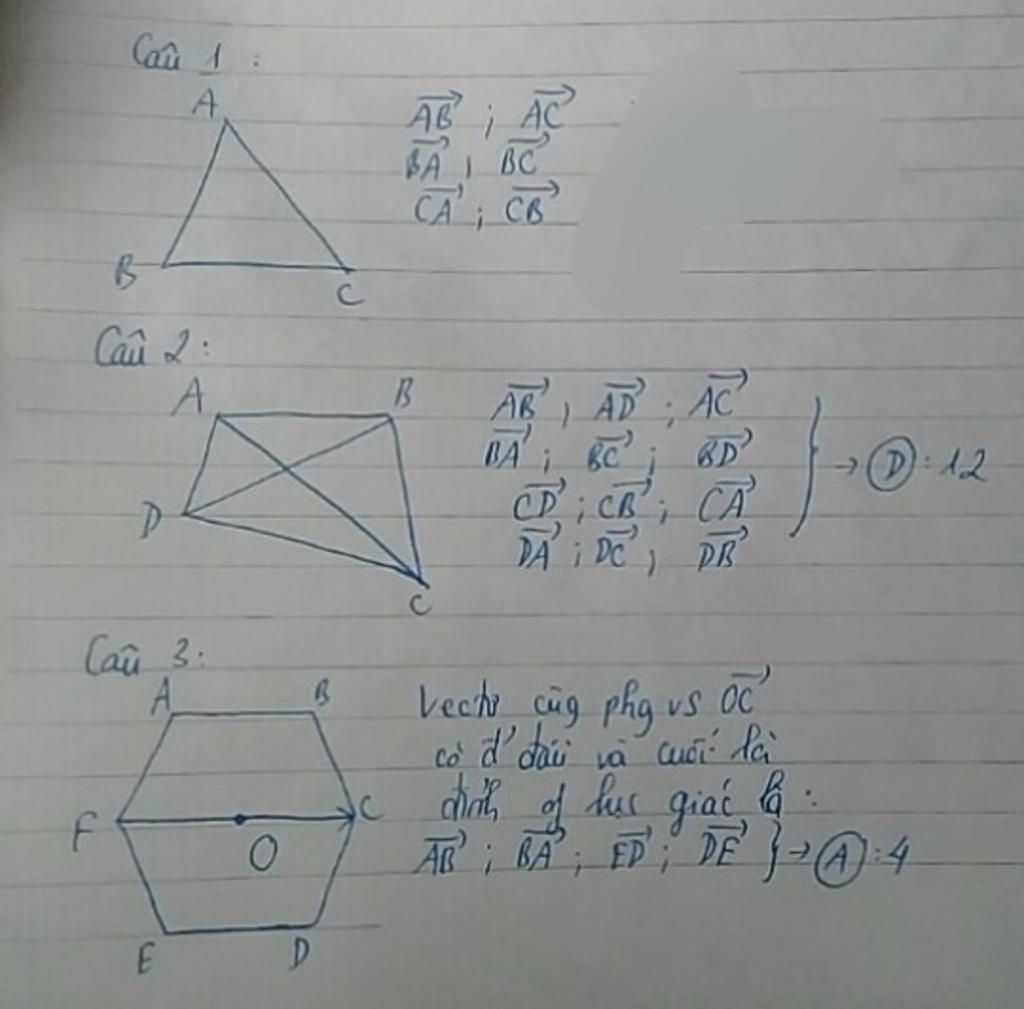 Câu 1 :
A
AB→ ; AC→
BA→ , BC→
CA→ ; CB→
B
C
Câu 2 :
A B
AB→ , AD→ ; AC→
BA→ ; BC→ ; BD→
CD→ ; CB→ ; CA→
DA→ ; DC→ , DB→
→ D : 12
D
C
Câu 3 :
A B
Vectơ cùg phg vs OC→
có đ' đầu và cuối là
đỉnh of lục giác là :
AB→ ; BA→ ; ED→ ; DE→ } → A : 4
F C
O
E D